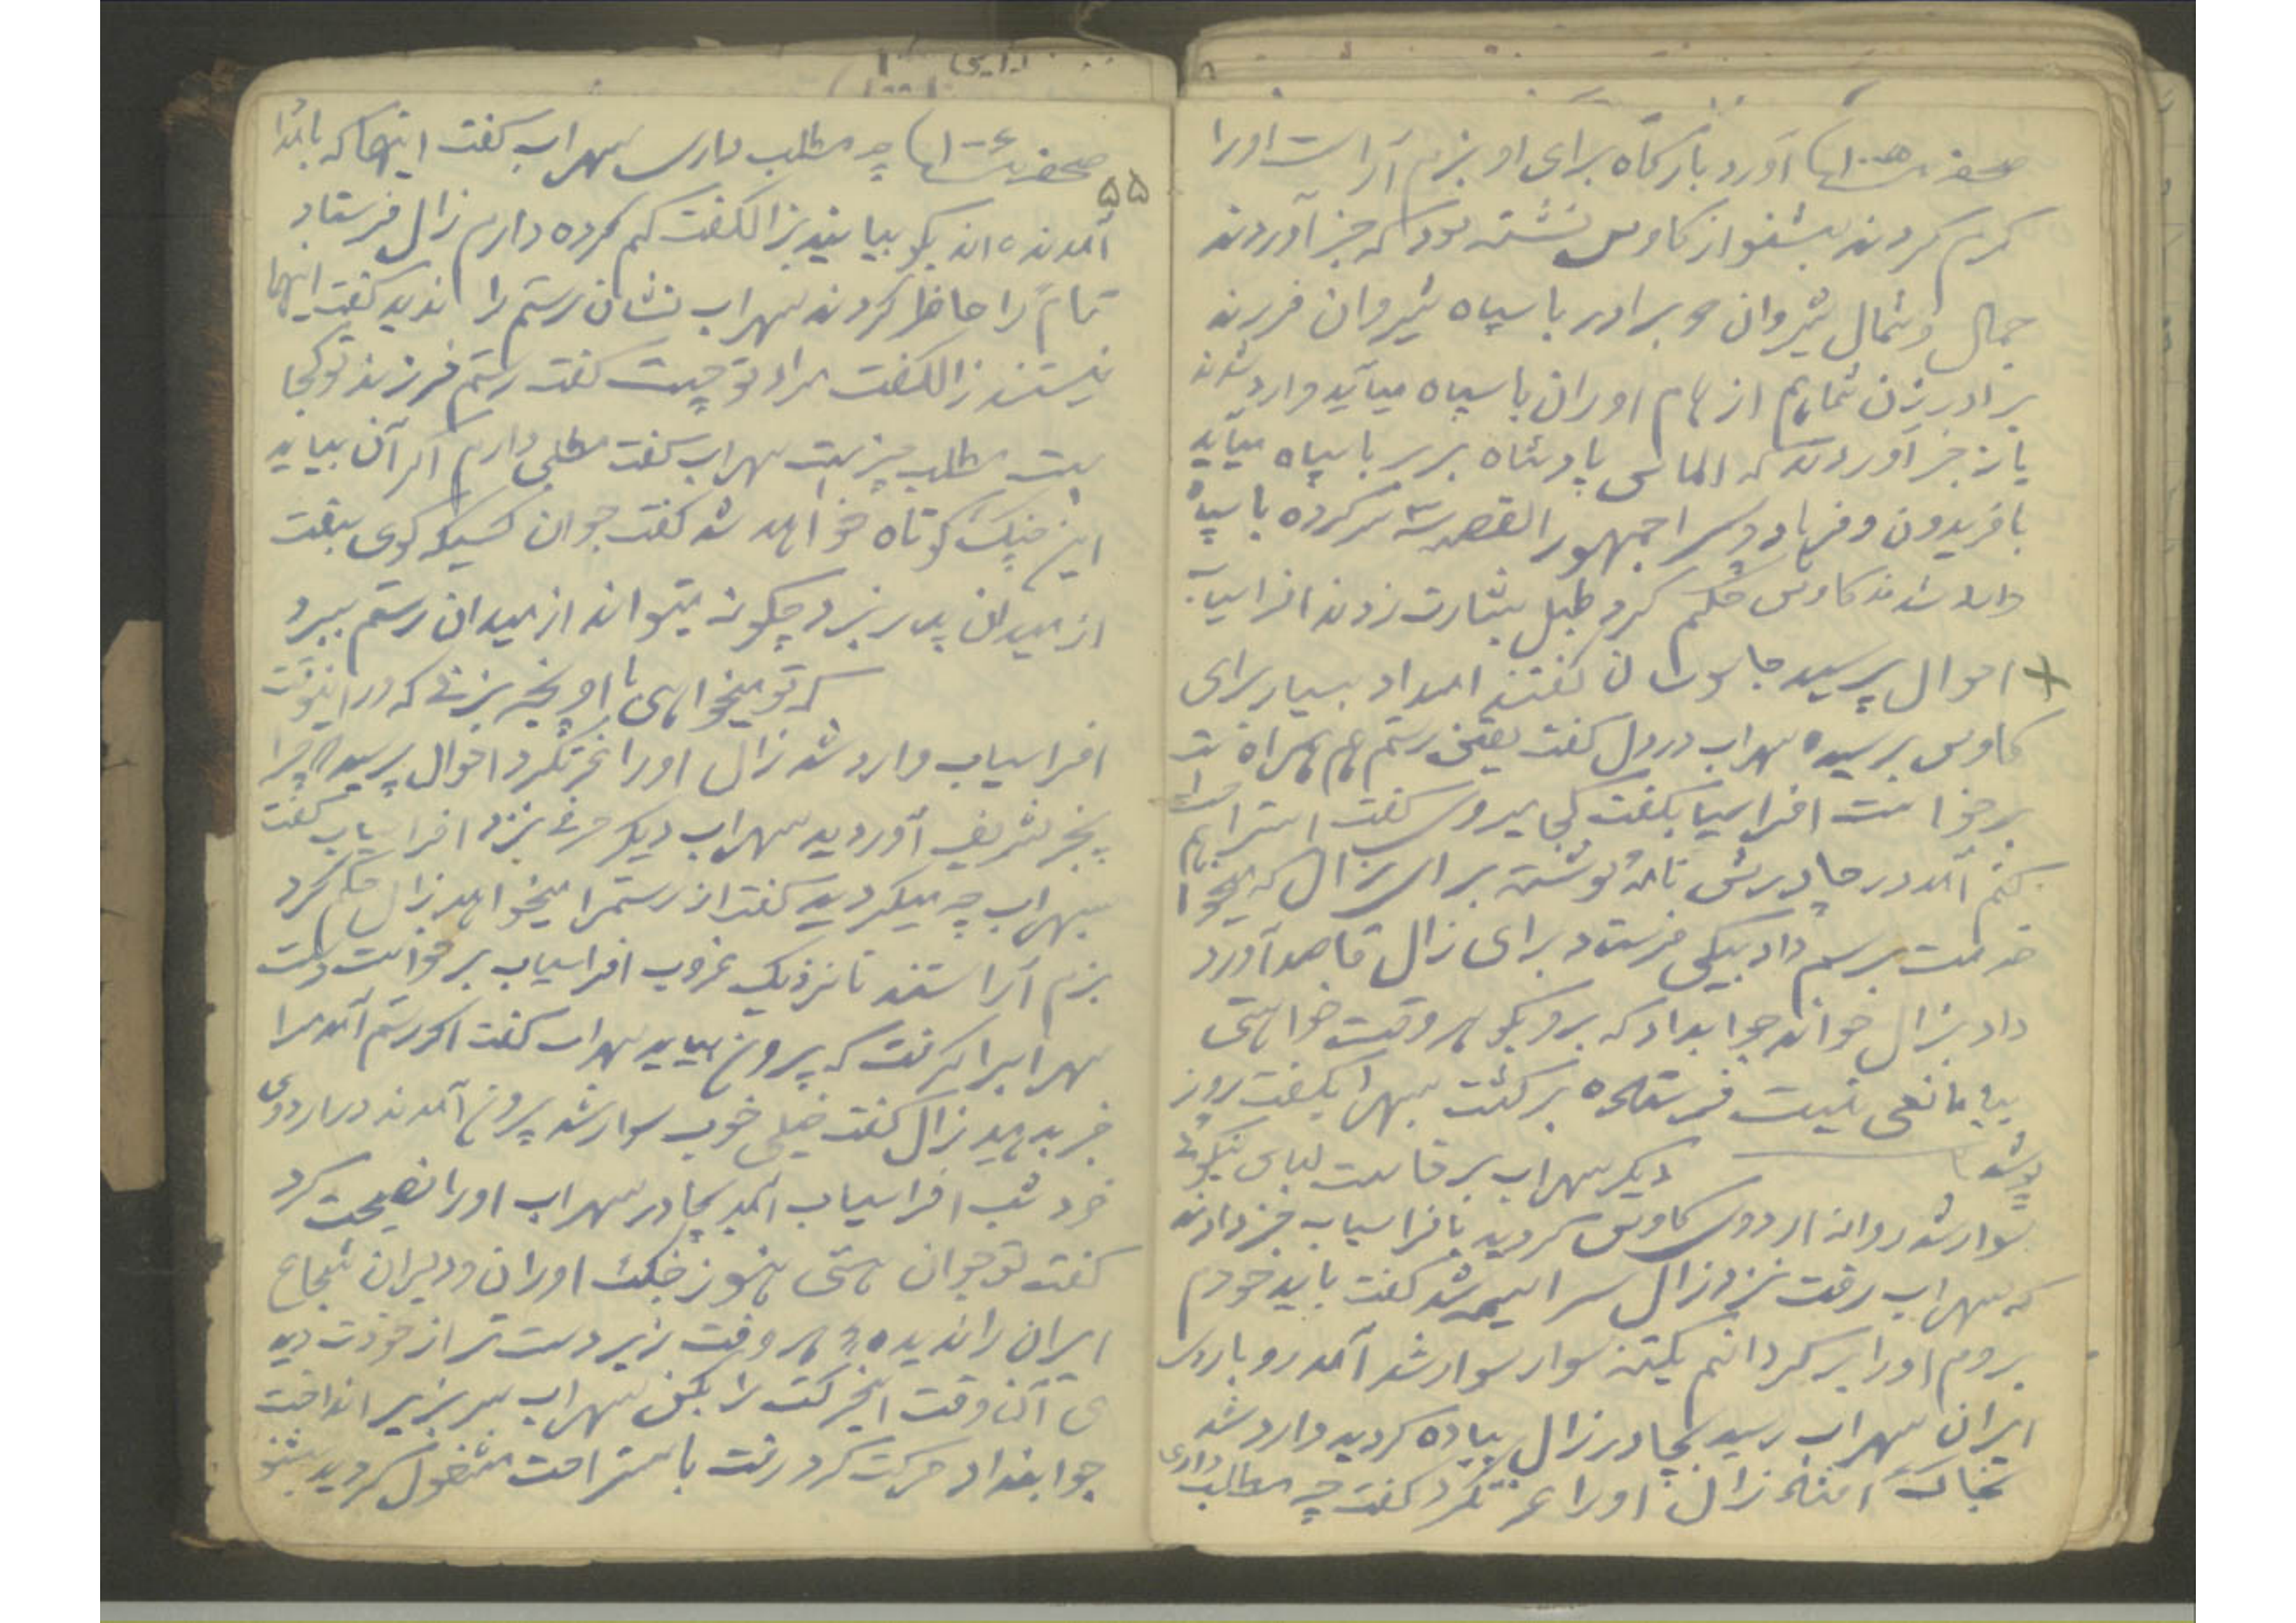 آورد بارگاه برای او بزم آراست اورا
گرم کردند بشنو از کاوس نشسته بود که خبر آوردند
جمال و شمال شیروان دو برادر با سپاه شیروان فررند
برادر زن شما هم از هام اوران با سپاه میآید وارد شدند
باز خبر آوردند که الماس پادشاه بربر با سپاه میآید
با فریدون و فرهاد و جمهور القصه سه سرکرده با سپاه
وارد شدند کاوس حکم کرد طبل بشارت زدند افراسیاب
احوال پرسید جاسوسان گفتند امداد بسیار برای
کاوس رسیده سهراب در دل گفت یقین رستم هم همراه است
برخواست افراسیاب گفت کجا میروی گفت استراحت
کنم آمد در چادرش نامه نوشته برای زال که میخواهم
خدمت برسم داد بیکی فرستاد برای زال قاصد آورد
داد بزال خواند جوابداد که برو بگو هر وقت خواهی
بیا مانعی نیست فرستاده برگشت سهراب گفت روز
دیگر سهراب برخاست لباس نیکوئی
پوشید
سوار شد روانه اردوی کاوس گردید بافراسیاب خبر دادند
که سهراب رفت نزد زال سراسیمه شد گفت باید خودم
بروم اورا برگردانم یکتنه سوار سوار شد آمد رو باردوی
ایران سهراب رسید بچادر زال پیاده گردید وارد شد
بخاک افتاد زال اورا عزت کرد گفت چه مطلب داری
۵۵
چه مطلب داری سهراب گفت اینها که بامداد
آمدنده اند بگو بیایند بزال گفت کم کرده دارم زال فرستاد
تمام را حاظر کردند سهراب نشان رستم را ندید گفت اینها
نیستند زال گفت مراد تو چیست گفت رستم فرزند تو کجا
است مطلب چیست سهراب گفت مطلبی دارم اگر آن بیاید
این جنگ کوتاه خواهد شد گفت جوان کسیکه گوی سبقت
از میدان پدر نبرد چگونه میتواند از میدان رستم ببرد
که تو میخواهی با او پنجه بزنی که در اینوقت
افراسیاب وارد شد زال اورا عزتکرد احوال پرسید چرا
بیخبر تشریف آوردید سهراب دیگر حرفی نزد افراسیاب گفت
سهراب چه میگردید گفت از رستمرا میخواهد زال حکم کرد
بزم آراستند تا نزدیک غروب افراسیاب برخواست دست
سهرابرا گرفت که بیرون بیاید سهراب گفت اگر رستم آمد مرا
خبر بدهید زال گفت خیلی خوب سوار شد بیرون آمدند در اردوی
خود شب افراسیاب آمد بچادر سهراب اورا نصیحت کرد
گفت تو جوان هستی هنوز جنگ اوران و دلیران شجاع
ایران را ندیده هر وقت زبر دست تر از خودت دید
ی آن وقت اینحرکت را بکن سهراب سر بزیر انداخت
جوابنداد حرکت کرد رفت باستراحت مشغول گردید بشنو